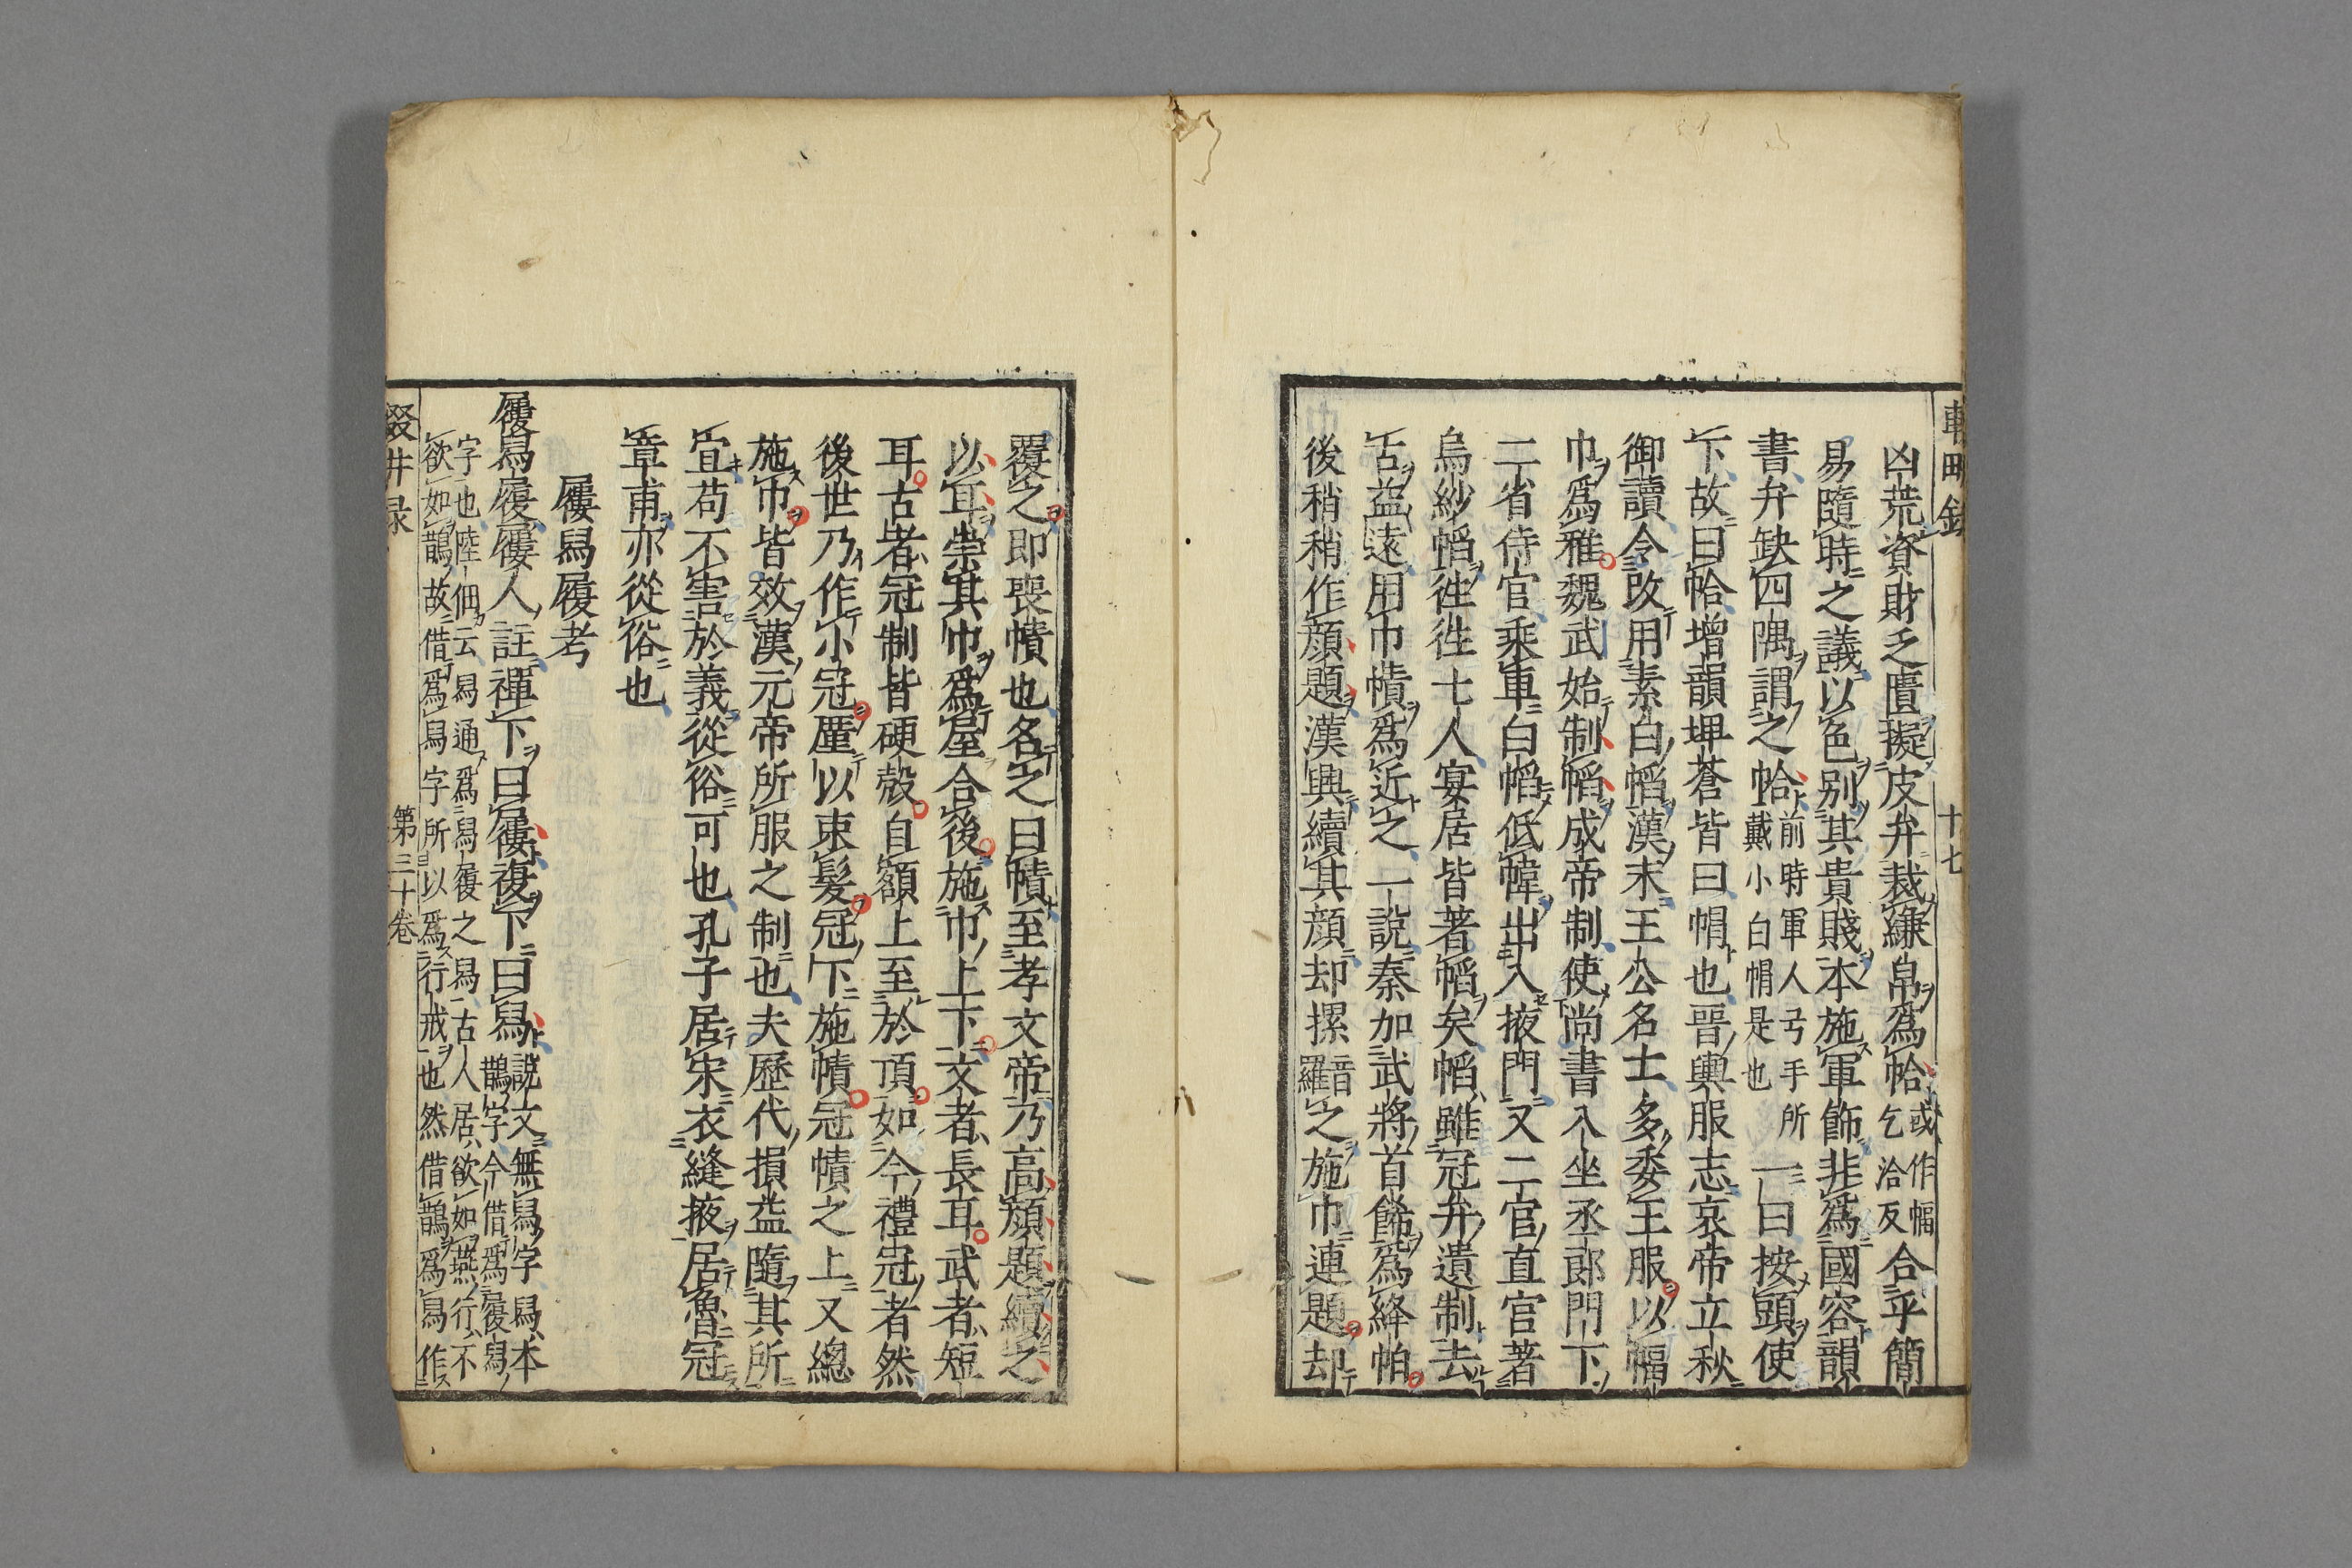 輟畊録
十七
凶荒資財乏匱擬皮弁裁縑帛爲帢或作幍乞洽反合乎簡
易隨時之議以色别其貴賤本施軍飾非爲國容韻
書弁缺四隅謂之帢前時軍人弓手所戴小白帽是也一曰按頭使
下故曰帢增韻埤蒼皆曰帽也晉輿服志哀帝立秋
御讀令改用素白幍漢末王公名士多委王服以幅
巾爲雅魏武始制幍成帝制使尚書八坐丞郎門下
二省侍官乘車白幍低幃出入掖門又二官直官著
烏紗幍徃徃七人宴居皆著幍矣幍雖冠弁遺制去
古益遠用巾幘爲近之一説秦加武將首飾爲絳帕
後稍稍作顔題漢興續其顔却摞音羅之施巾連題却
覆之即喪幘也名之曰幘至孝文帝乃高顔題續之
以耳崇其巾爲屋合後施巾上下文者長耳武者短
耳古者冠制皆硬殼自額上至於頂如今禮冠者然
後世乃作小冠厪以束髮冠下施幘冠幘之上又總
施巾皆效漢元帝所服之制也夫歷代損益隨其所
宜苟不害於義從俗可也孔子居宋衣縫掖居魯冠
章甫亦從俗也
屨舄履考
屨舄履屨人註禪下曰屨複下曰舄説文無舄字舄本鵲字今借爲履舄
字也陸佃云舄通爲舄履之舄古人居欲如燕行不
欲如鵲故借爲舄字所以爲行戒也然借鵲爲舄作
輟畊録
第三十卷